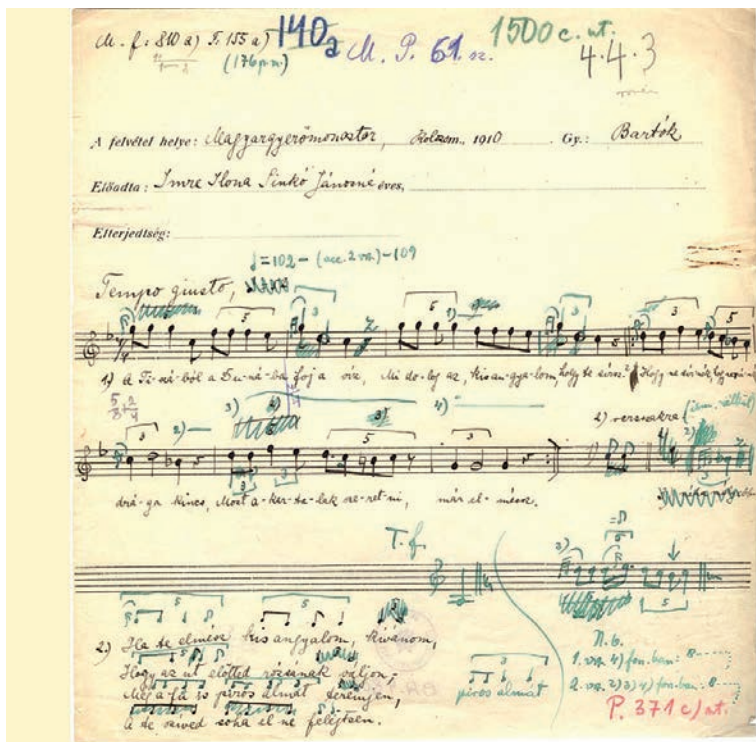 M. f: 810 a) F. 155 a) 140 a M. P. 61. sz. 1500 c. ut.
(176 p.m.) 4.4.3
A felvétel helye: Magyargyerőmonostor, Kolozsm. 1910 Gy.: Bartók
Előadta: Imre Ilona Sinkó Jánosné éves,
Elterjedtség:
♩=102-(acc. 2 vsz.)-109
Tempo giusto,
3 5 5 1) 3 5
7/4
1) A Ti-szá-ból a Du-ná-ba foj a víz, Mi do-log az, kis an-gya-lom, hogy te sírsz? Hogy ne sírnék,
5/8 2/4
3) 4) 2) versszakra
3 2) 5 3 2)
drá-ga kincs, Most a-kar-ta-lak sze-ret-ni, már el-mész.
T. f.
3) 5
5 5
2.) Ha te elmész kis angyalom, kívánom,
Hogy az út előtted rózsának váljon,
Még a fa is piros almát teremjen,
A te szíved soha el ne felejtsen.
3
piros almát
N. b.
1. vsz. 4) fon.ban: 8
2. vsz. 2) 3) 4) fon.ban: 8
P. 371 c) ut.